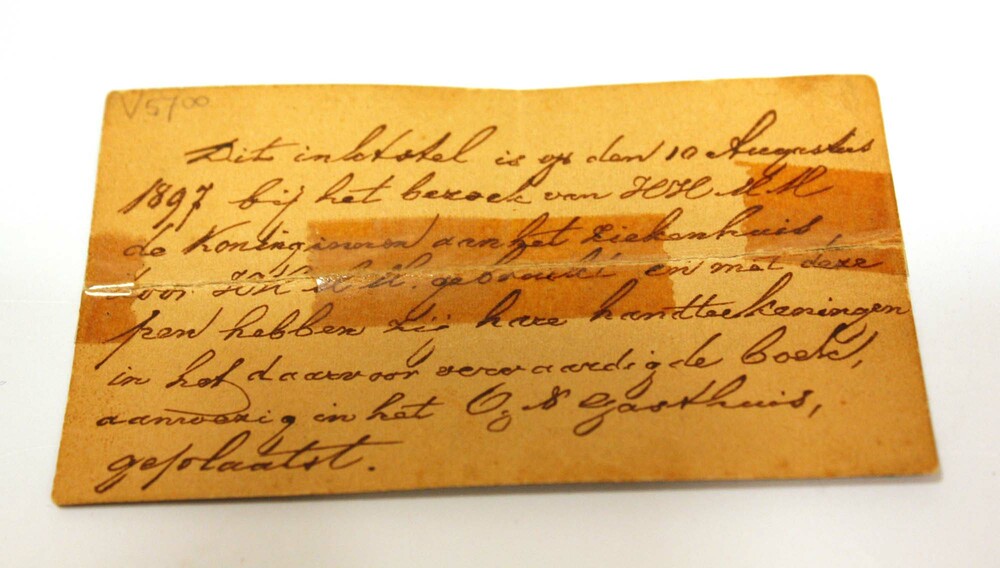 V5700
Dit inktstel is op den 10 Augustus
1897 bij het bezoek van HH M M
de Koninginnen aan het Ziekenhuis,
door HH M.M. gebruikt en met deze
pen hebben zij hare handteekeningen
in het daarvoor vervaardigde boek,
aanwezig in het O. N Gasthuis,
geplaatst.